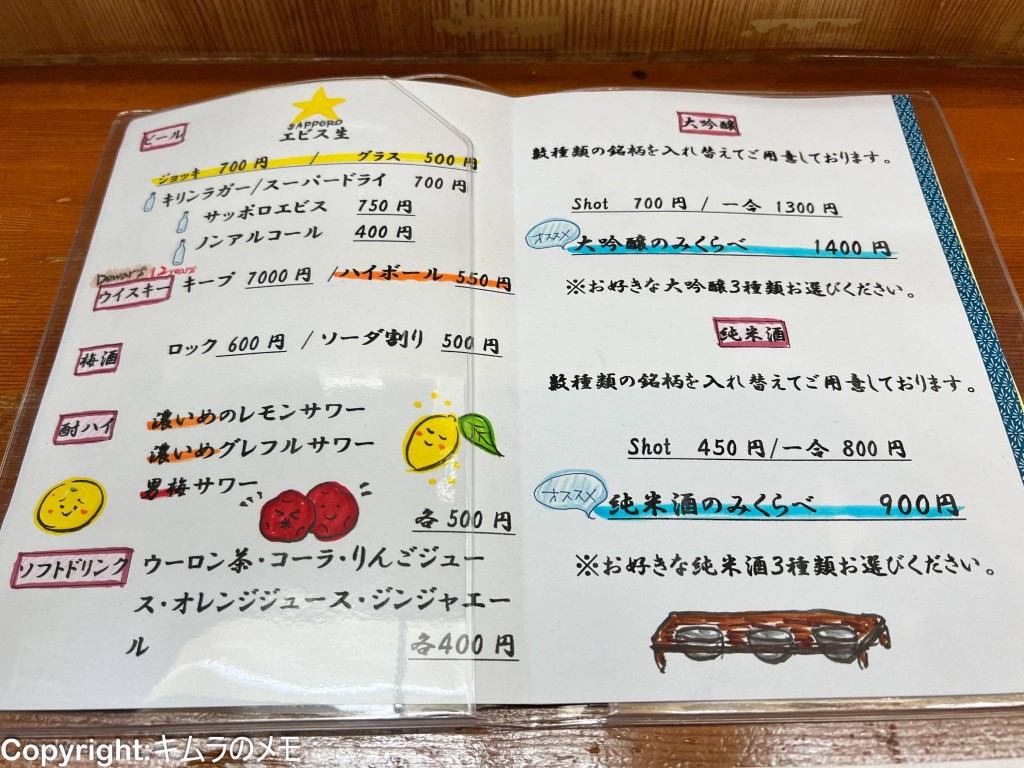 ビール
SAPPORO
エビス生
ジョッキ 700円 / グラス 500円
キリンラガー/スーパードライ 700円
サッポロエビス 750円
ノンアルコール 400円
Dewar's 12years
ウイスキー キープ 7000円 /ハイボール 550円
梅酒 ロック 600円 / ソーダ割り 500円
酎ハイ
濃いめのレモンサワー
濃いめグレフルサワー
男梅サワー
各500円
ソフトドリンク ウーロン茶・コーラ・りんごジュー
ス・オレンジジュース・ジンジャエー
ル 各400円
大吟醸
数種類の銘柄を入れ替えてご用意しております。
Shot 700円 / 一合 1300円
オススメ 大吟醸のみくらべ 1400円
※お好きな大吟醸3種類お選びください。
純米酒
数種類の銘柄を入れ替えてご用意しております。
Shot 450円/一合 800円
オススメ 純米酒のみくらべ 900円
※お好きな純米酒3種類お選びください。
Copyright:キムラのメモ